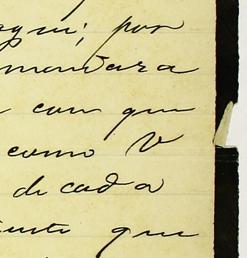 aqui; por
mandara
con que
como V
de cada
que